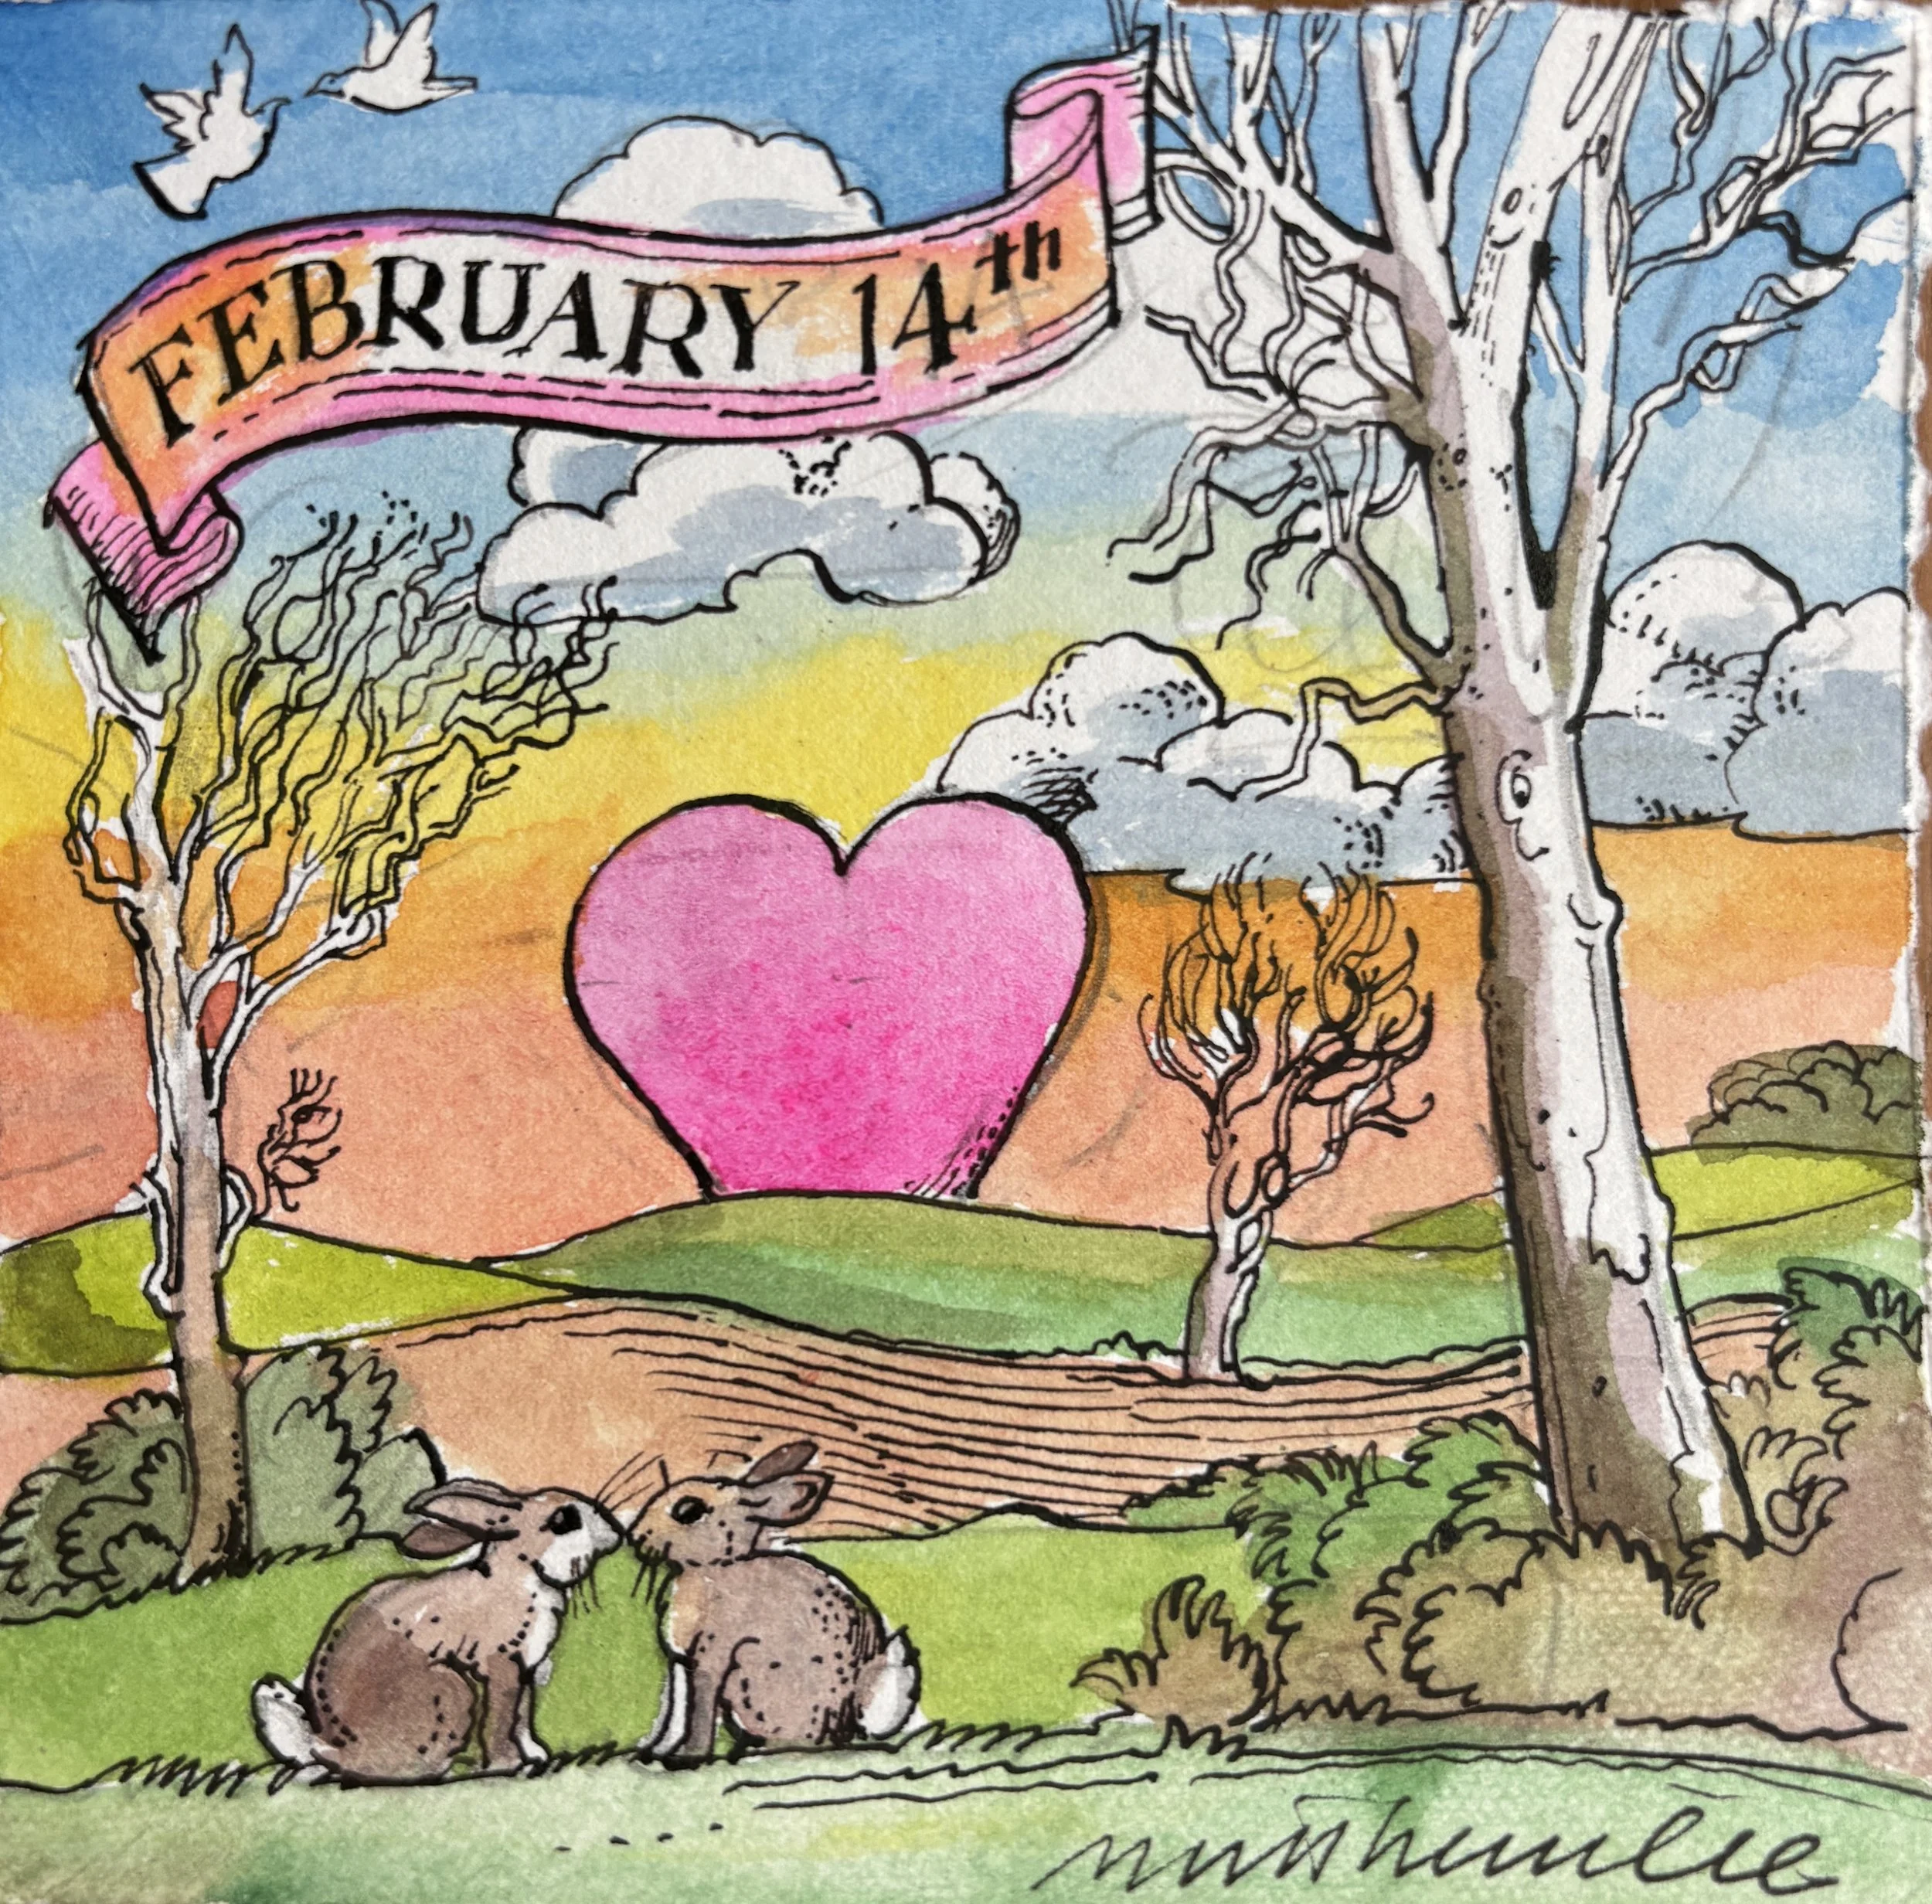 FEBRUARY 14th